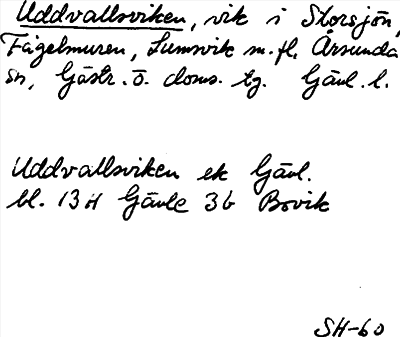 Uddvallsviken, vik i Storsjön,
Fågelmuren, Lumsvik m. fl. Årsunda
sn, Gästr. ö. doms. tg. Gävl. l.
Uddvallsviken ek Gävl.
bl. 13 H Gävle 3b Bovik
SH-60